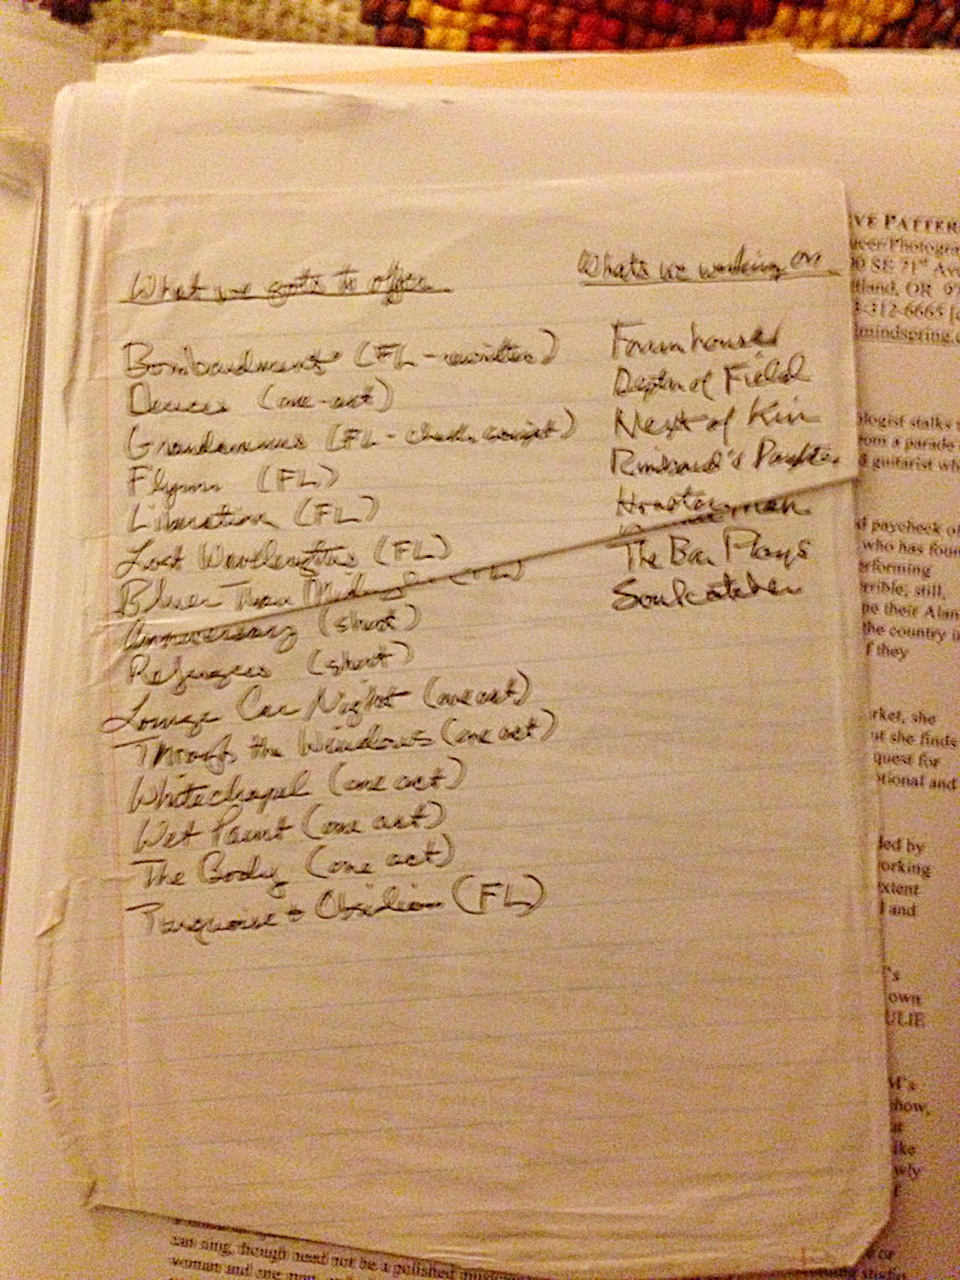 What we gots to offer
Bombardment (FL - rewritten)
Deuces (one-act)
(FL - check script)
Flynn (FL)
Liberation (FL)
Lost Wavelengths (FL)
Bluer Than Midnight (FL)
Anniversary (short)
Refugees (short)
Lounge Car Night (one act)
Through the Windows (one act)
Whitechapel (one act)
Wet Paint (one act)
The Body (one act)
Turquoise + Obsidian (FL)
Whats we working on
Farmhouse
Depth of Field
Next of Kin
Rimbaud's
The Bar Plays
Soulcatcher
VE PATTER
cer/Photogra
0 SE 71st Ave
tland, OR 97
-312-6665 [c
mindspring.c
ologist stalks t
om a parade
d guitarist wh
d paycheck of
who has foun
erforming
rrible; still,
pe their Alan
the country i
f they
rket, she
ut she finds
quest for
otional and
ded by
orking
extent
l and
's
own
ULIE
M's
how,
at
ike
wly
can sing, though need not be a polished
woman and one man